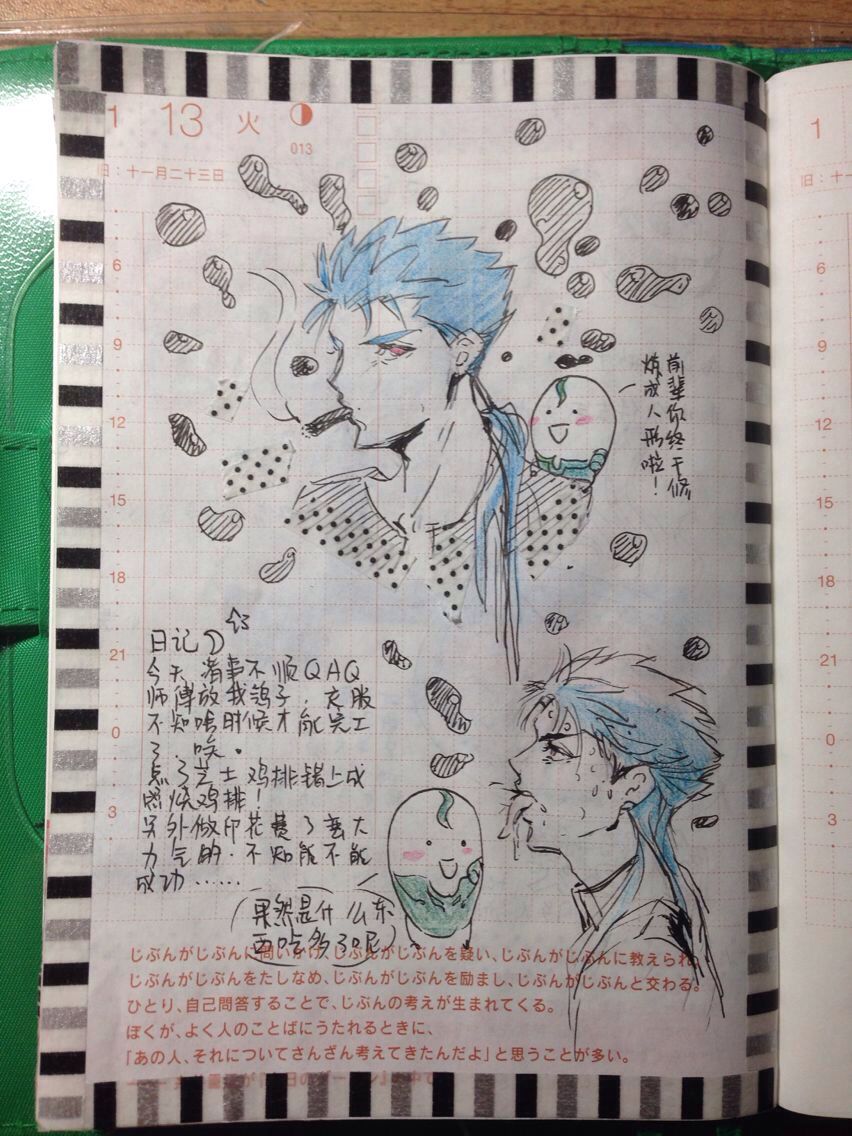 1 13 火
013
旧：十一月二十三日
6
9
12
15
18
21
0
3
前辈你终于修
炼成人形啦！
日记
今天诸事不顺QAQ
师傅放我鸽子，衣服
不知啥时候才能完工
了，唉。
点了芝士鸡排错上成
照烧鸡排！
另外做印花费了蛮大
力气的，不知能不能
成功……
果然是什么东
西吃多了呢
じぶんがじぶんに問いかけ、じぶんがじぶんを疑い、じぶんがじぶんに教えられ、
じぶんがじぶんをたしなめ、じぶんがじぶんを励まし、じぶんがじぶんと交わる。
ひとり、自己問答することで、じぶんの考えが生まれてくる。
ぼくが、よく人のことばにうたれるときに、
「あの人、それについてさんざん考えてきたんだよ」と思うことが多い。
1
旧：十一
6
9
12
15
18
21
0
3